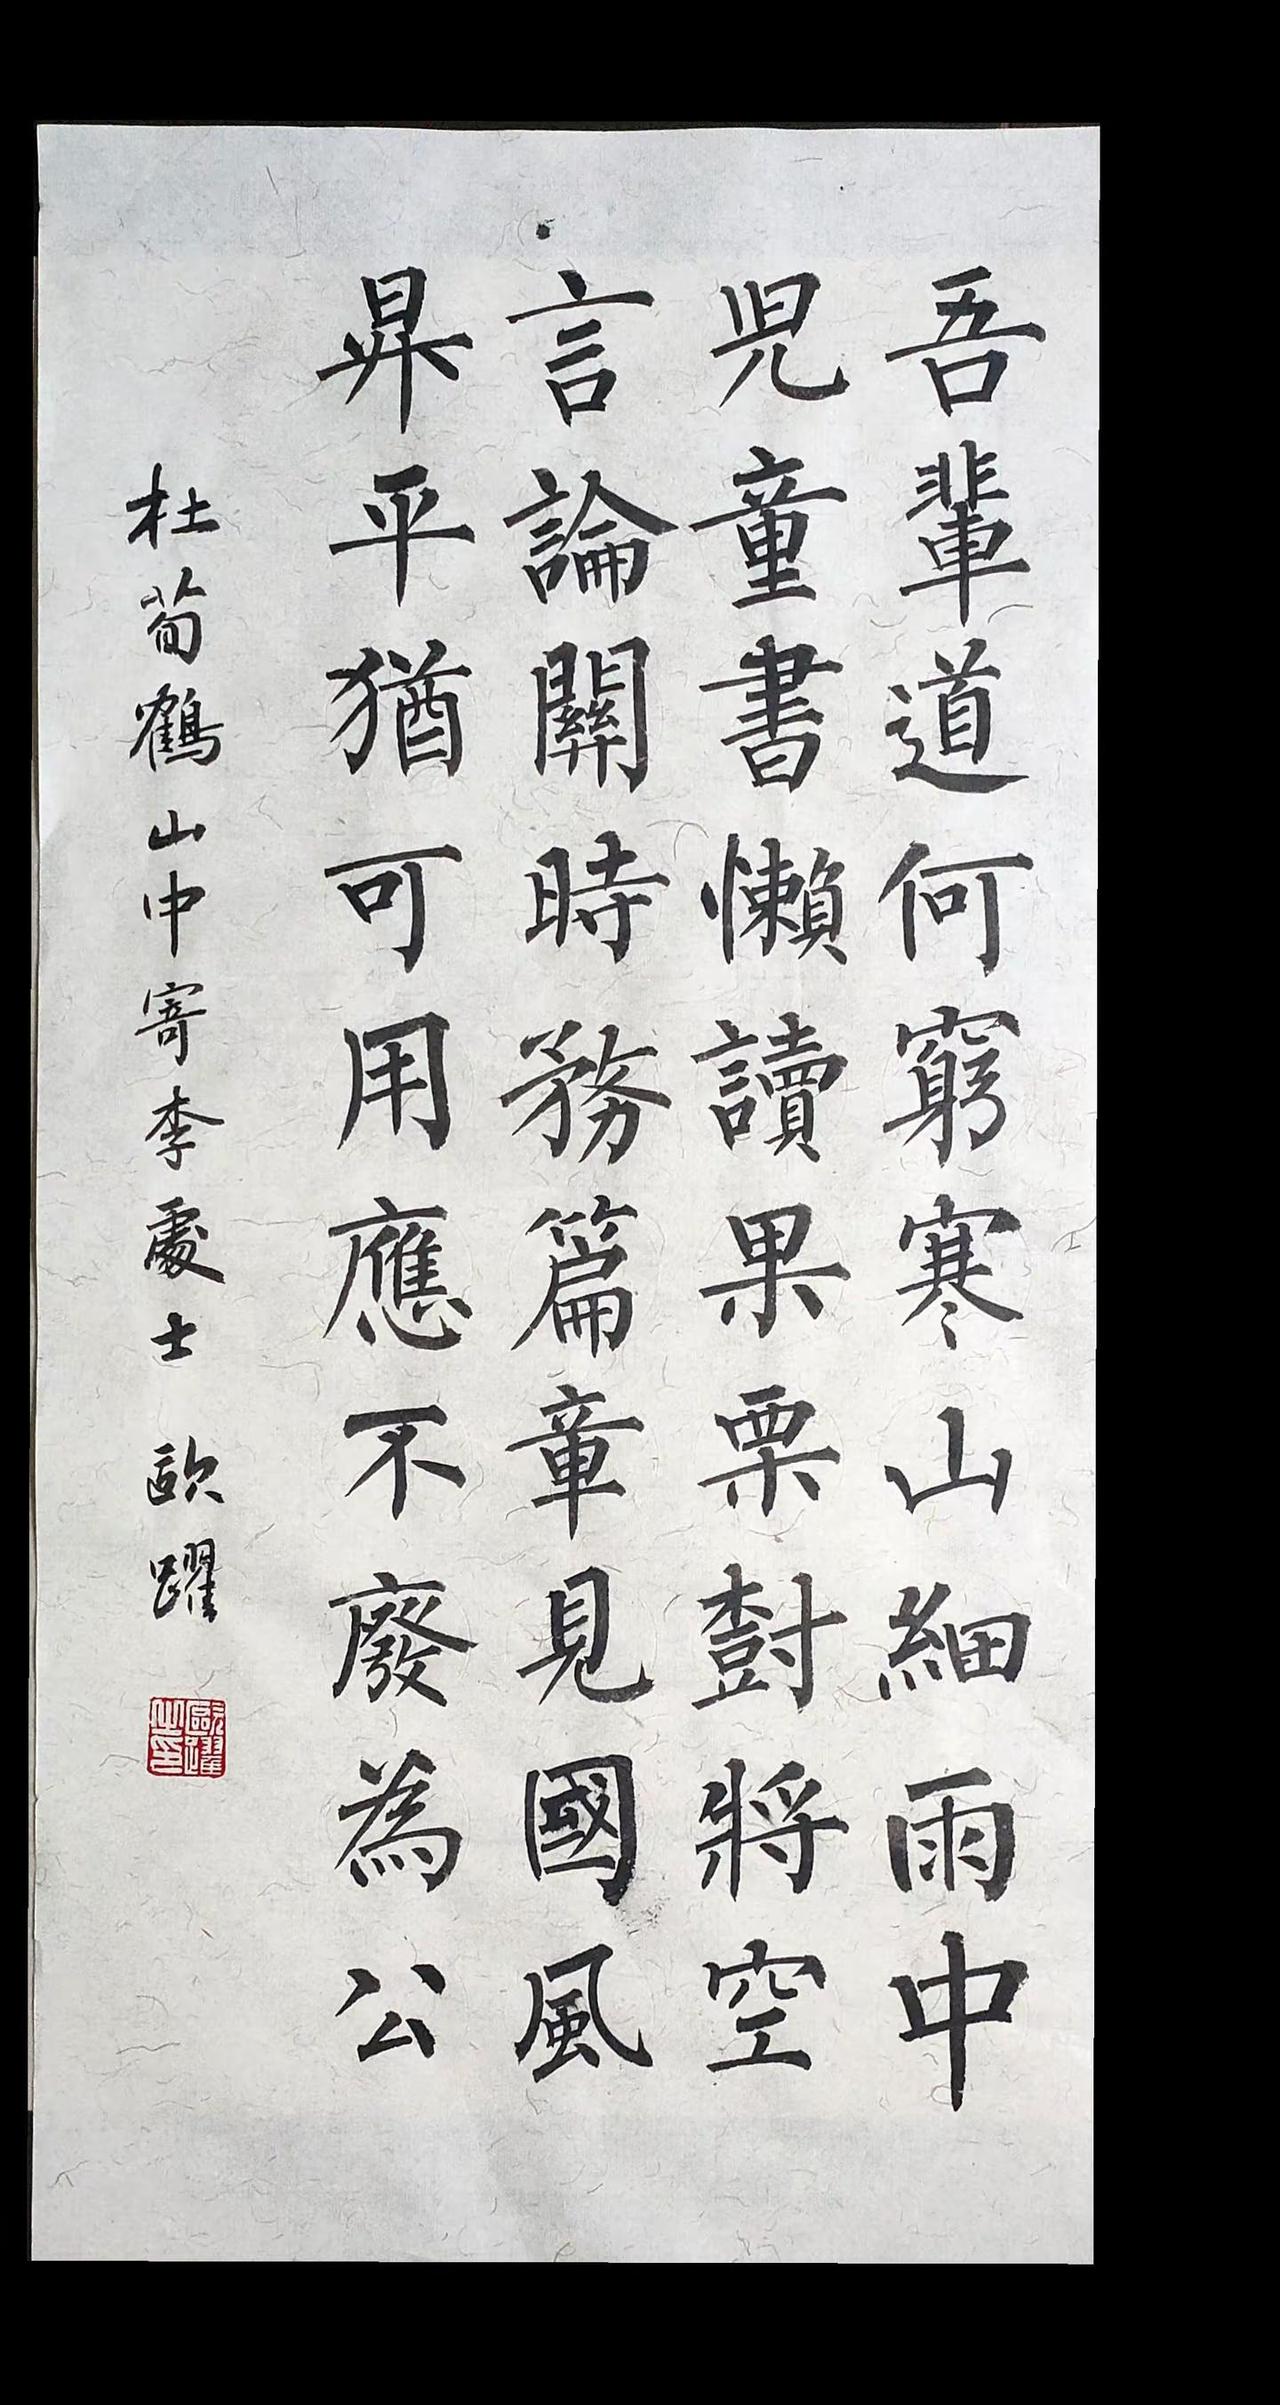 吾輩道何窮寒山細雨中
兒童書懶讀果栗樹將空
言論關時務篇章見國風
昇平猶可用應不廢為公
杜荀鶴山中寄李處士 歐躍
歐躍之印